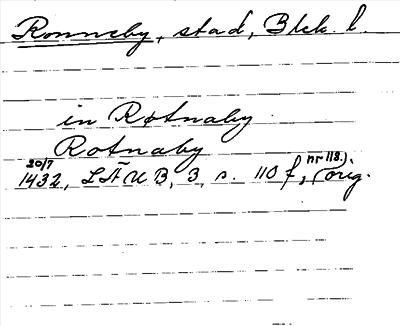 Ronneby, stad, Blek. l.
in Rotnaby
Rotnaby
20/7 1432, LÄUB, 3, s. 110 f, (orig. nr 113).